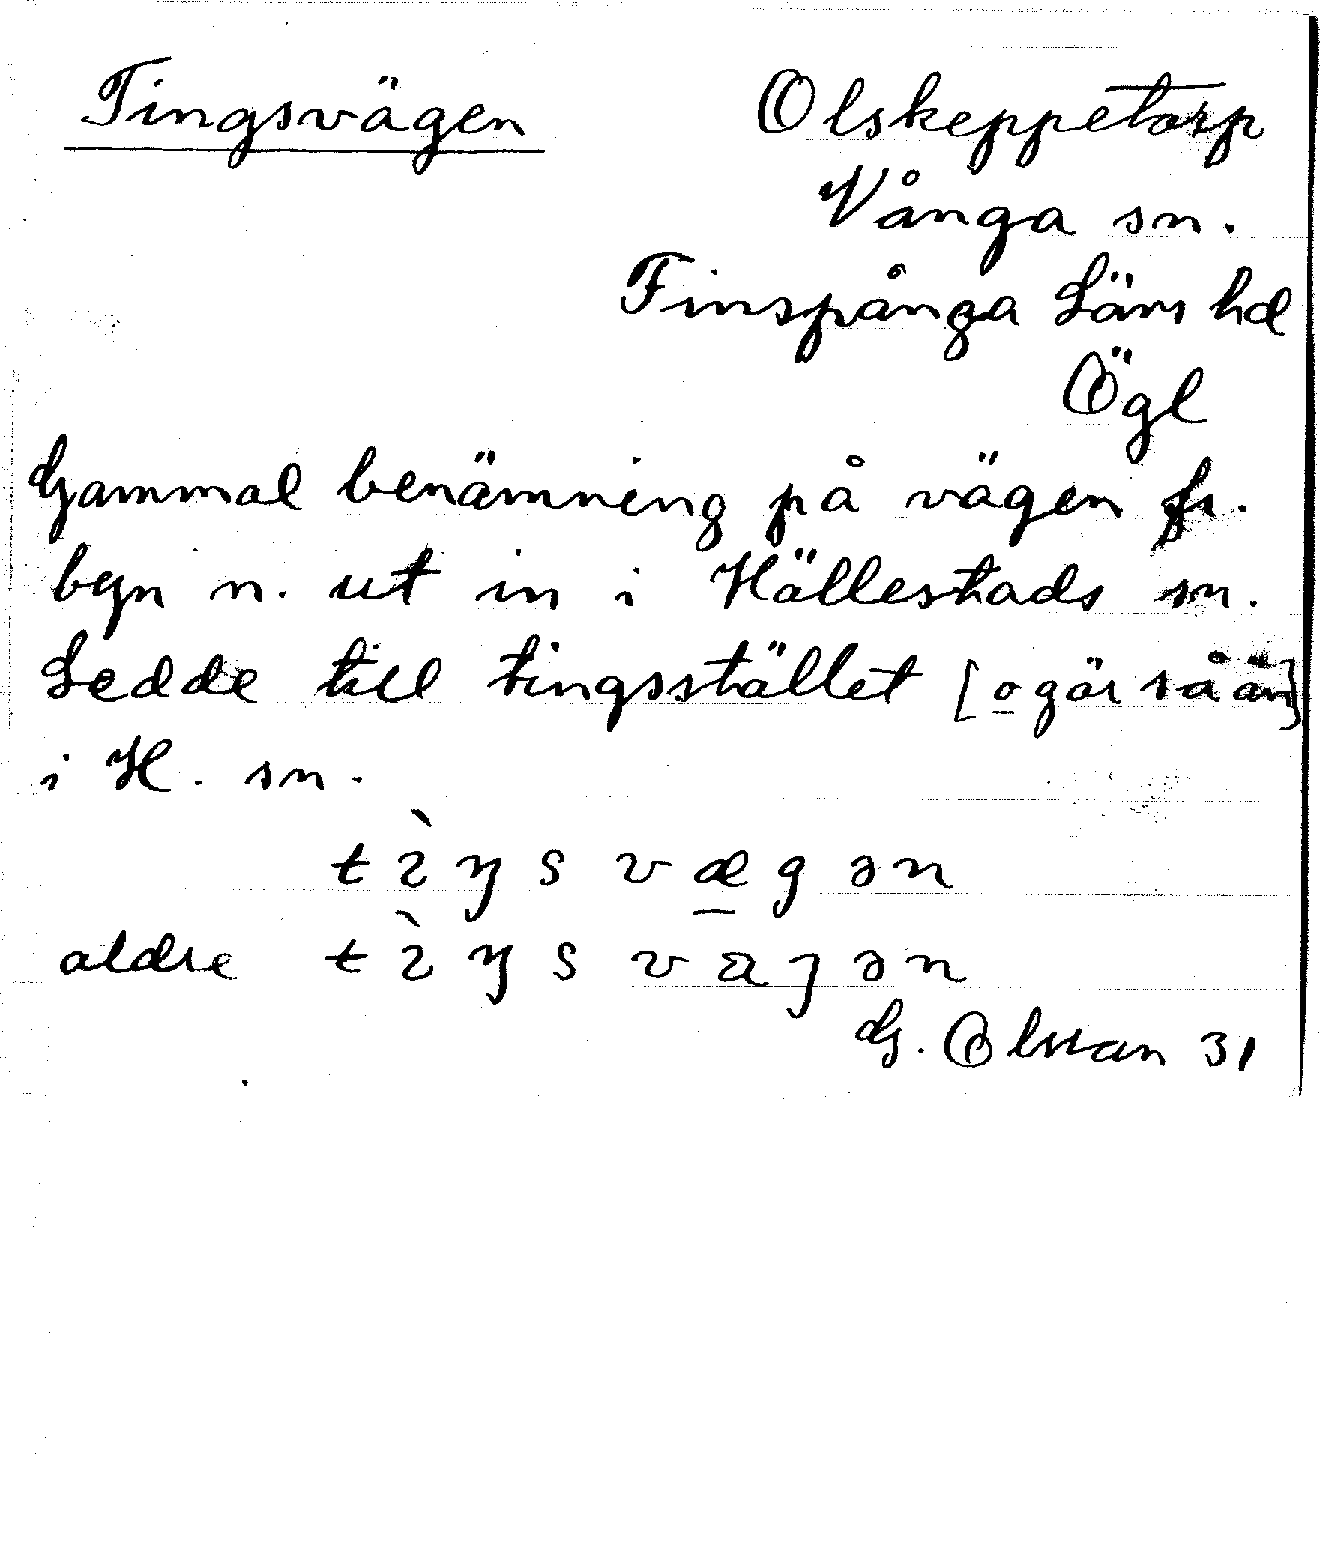 Tingsvägen Olskeppetorp
Vånga sn.
Finspånga Läns hd
Ögl
Gammal benämning på vägen fr.
byn n. ut in i Hällestads sn.
Ledde till tingsstället [o gör så än]
i H. sn.
tìŋsvæ̠gən
aldre tìŋsvaȷən
G. Olsson 31